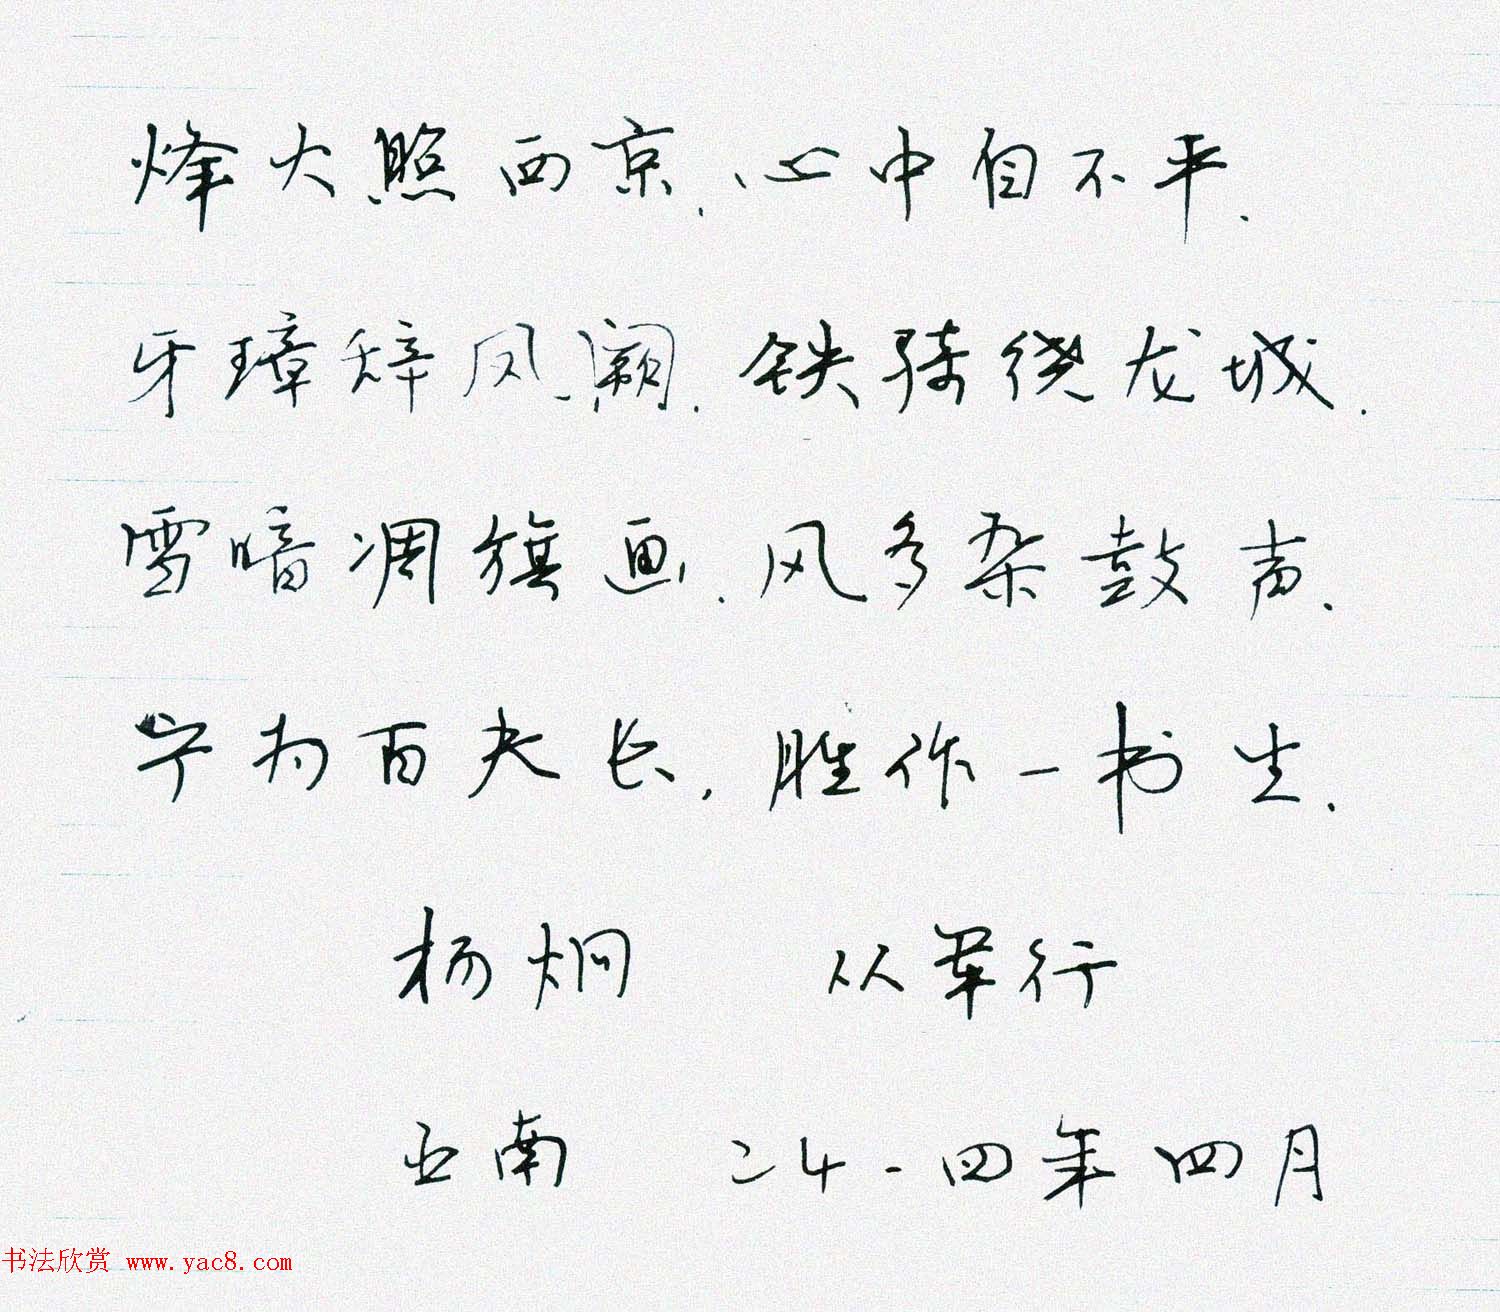 烽火照西京、心中自不平.
牙璋辞凤阙.铁骑绕龙城.
雪暗凋旗画.风多杂鼓声.
宁为百夫长.胜作一书生.
杨炯 从军行
南 二〇一四年四月
书法欣赏 www.yac8.com